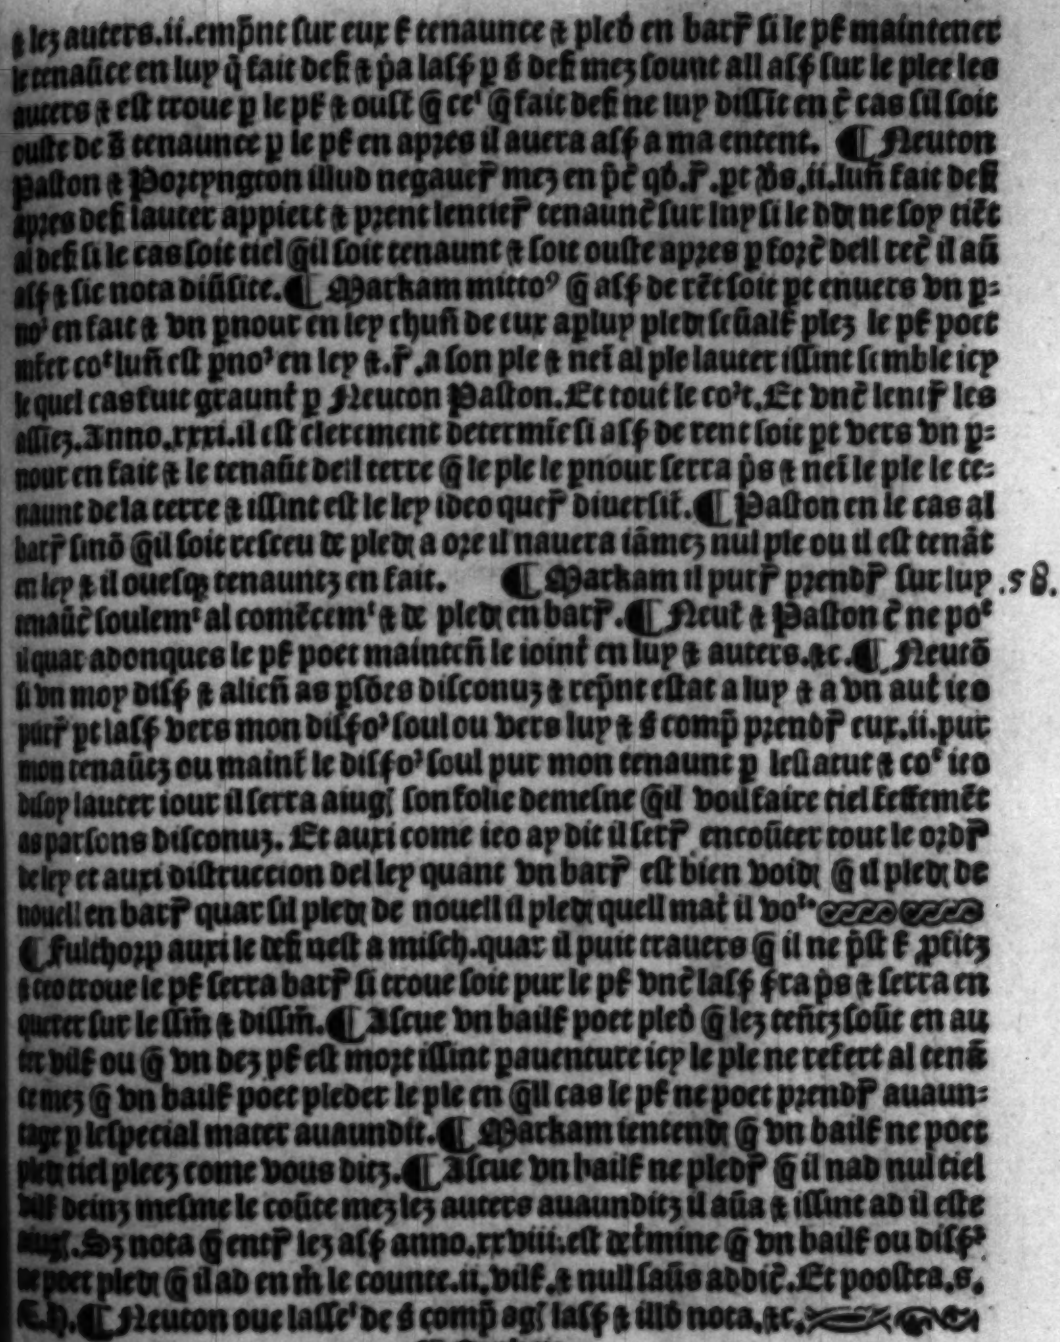 ⁊ lez auters.ii.emp̄nt sur eux ł tenaunce ⁊ pled̛ en barr̄ si le pł maintener
le tenaūce en luy q̄ fait defł ⁊ p̄a lass̄ p s̄ defł mez sount all ass̄ sur le plee les
auters ⁊ est troue p le pł ⁊ oust q̄ ceᵗ q̄ fait defł ne luy dissit̄ en c̄ cas sil soit
ouste de s̄ tenaunce p le pł en apres il auera ass̄ a ma entent. ¶ Neuton
Paston ⁊ Portyngton illud negauer̄ mez en p̄c̄ qd̛.r̄.pt v̛s.ii.lun̄ fait defł
apres defł lauter appiert ⁊ prent lentier̄ tenaunc̄ sur luy si le dd̛ ne soy tiēt
al defł si le cas soit tiel q̄il soit tenaunt ⁊ soit ouste apres p forc̄ dell rec̄ il aū
ass̄ ⁊ sic nota diūsite. ¶ Markam mitto⁹ q̄ ass̄ de rēt soit pt enuers vn p=
noʳ en fait ⁊ vn pnour en ley chun̄ de eux apluy pled̛ seūalł plez le pł poet
mſer coᵗ lun̄ est pnoʳ en ley ⁊.r̄.a son ple ⁊ neī al ple lauter issint semble icy
le quel cas fuit graunt̄ p Neuton Paston. Et tout le coʳt. Et vnc̄ lentr̄ les
assiez. Anno.xxxi.il est clerement determīe si ass̄ de rent soit pt vers vn p=
nour en fait ⁊ le tenaūt dell terre q̄ le ple le pnour serra p̄s ⁊ neī le ple le te=
naunt de la terre ⁊ issint est le ley ideo quer̄ diuersit̄. ¶ Paston en le cas al
barr̄ sinō q̄il soit resceu de pled̛ a ore il nauera iāmez nul ple ou il est tenāt
en ley ⁊ il ouesqꝫ tenauntz en fait. ¶ Markam il purr̄ prendr̄ sur luy .58.
tenaūc̄ soulemᵗ al comēcemᵗ ⁊ de pled̛ en barr̄. ¶ Neut̄ ⁊ Paston c̄ ne poᵗ
il quar adonques le pł poet mainten̄ le ioint̄ en luy ⁊ auters.⁊c. ¶ Neutō
si vn moy diss̄ ⁊ alien̄ as psōes disconuz ⁊ rep̄nt estat a luy ⁊ a vn aut̄ ieo
purr̄ pt lass̄ vers mon diss̄oʳ soul ou vers luy ⁊ s̄ comp̄ prendr̄ eux.ii.pur
mon tenaūtz ou maint̄ le diss̄oʳ soul pur mon tenaunt p lestatut ⁊ coᵗ ieo
disoy lauter iour il serra aiug̛ son folie demesne q̄il voil faire tiel feffemēt
as parsons disconuz. Et auxi come ieo ay dit il serr̄ encoūter tout le ordr̄
de ley et auxi distruccion del ley quant vn barr̄ est bien void̛ q̄ il pled̛ de
nouell en barr̄ quar sil pled̛ de nouell il pled̛ quell mat̄ il voᵗ.
¶ Fulthorp auxi le defł nest a misch.quar il puit trauers q̄ il ne p̄st ł ꝓfitz
⁊ ceo troue le pł serra barr̄ si troue soit pur le pł vnc̄ lass̄ s̄ra p̄s ⁊ serra en
querer sur le ssm̄ ⁊ dissm̄. ¶ Ascue vn bailł poet pled̛ q̄ lez ten̄tz soūt en au
ter vilł ou q̄ vn dez pł est mort issint pauenture icy le ple ne refert al tenā
te mez q̄ vn bailł poet pleder le ple en q̄ll cas le pł ne poet prendr̄ auaun=
tage p lespecial mater auaundit. ¶ Markam ientend̛ q̄ vn bailł ne poet
pled̛ tiel pleez come vous ditz. ¶ Ascue vn bailł ne pledr̄ q̄ il nad nul tiel
vilł deinz mesme le coūte mez lez auters auaunditz il aūa ⁊ issint ad il este
aiug̛. Sz nota q̄ entr̄ lez ass̄ anno.xxviii.est det̄mine q̄ vn bailł ou diss̄ʳ
ne poet pled̛ q̄ il ad en m̄ le counte.ii.vilł.⁊ null saūs addic̄. Et poostea.s.
E.h. ¶ Neuton oue lasseᵗ de s̄ comp̄ ag̛ lass̄ ⁊ illd̛ nota.⁊c.